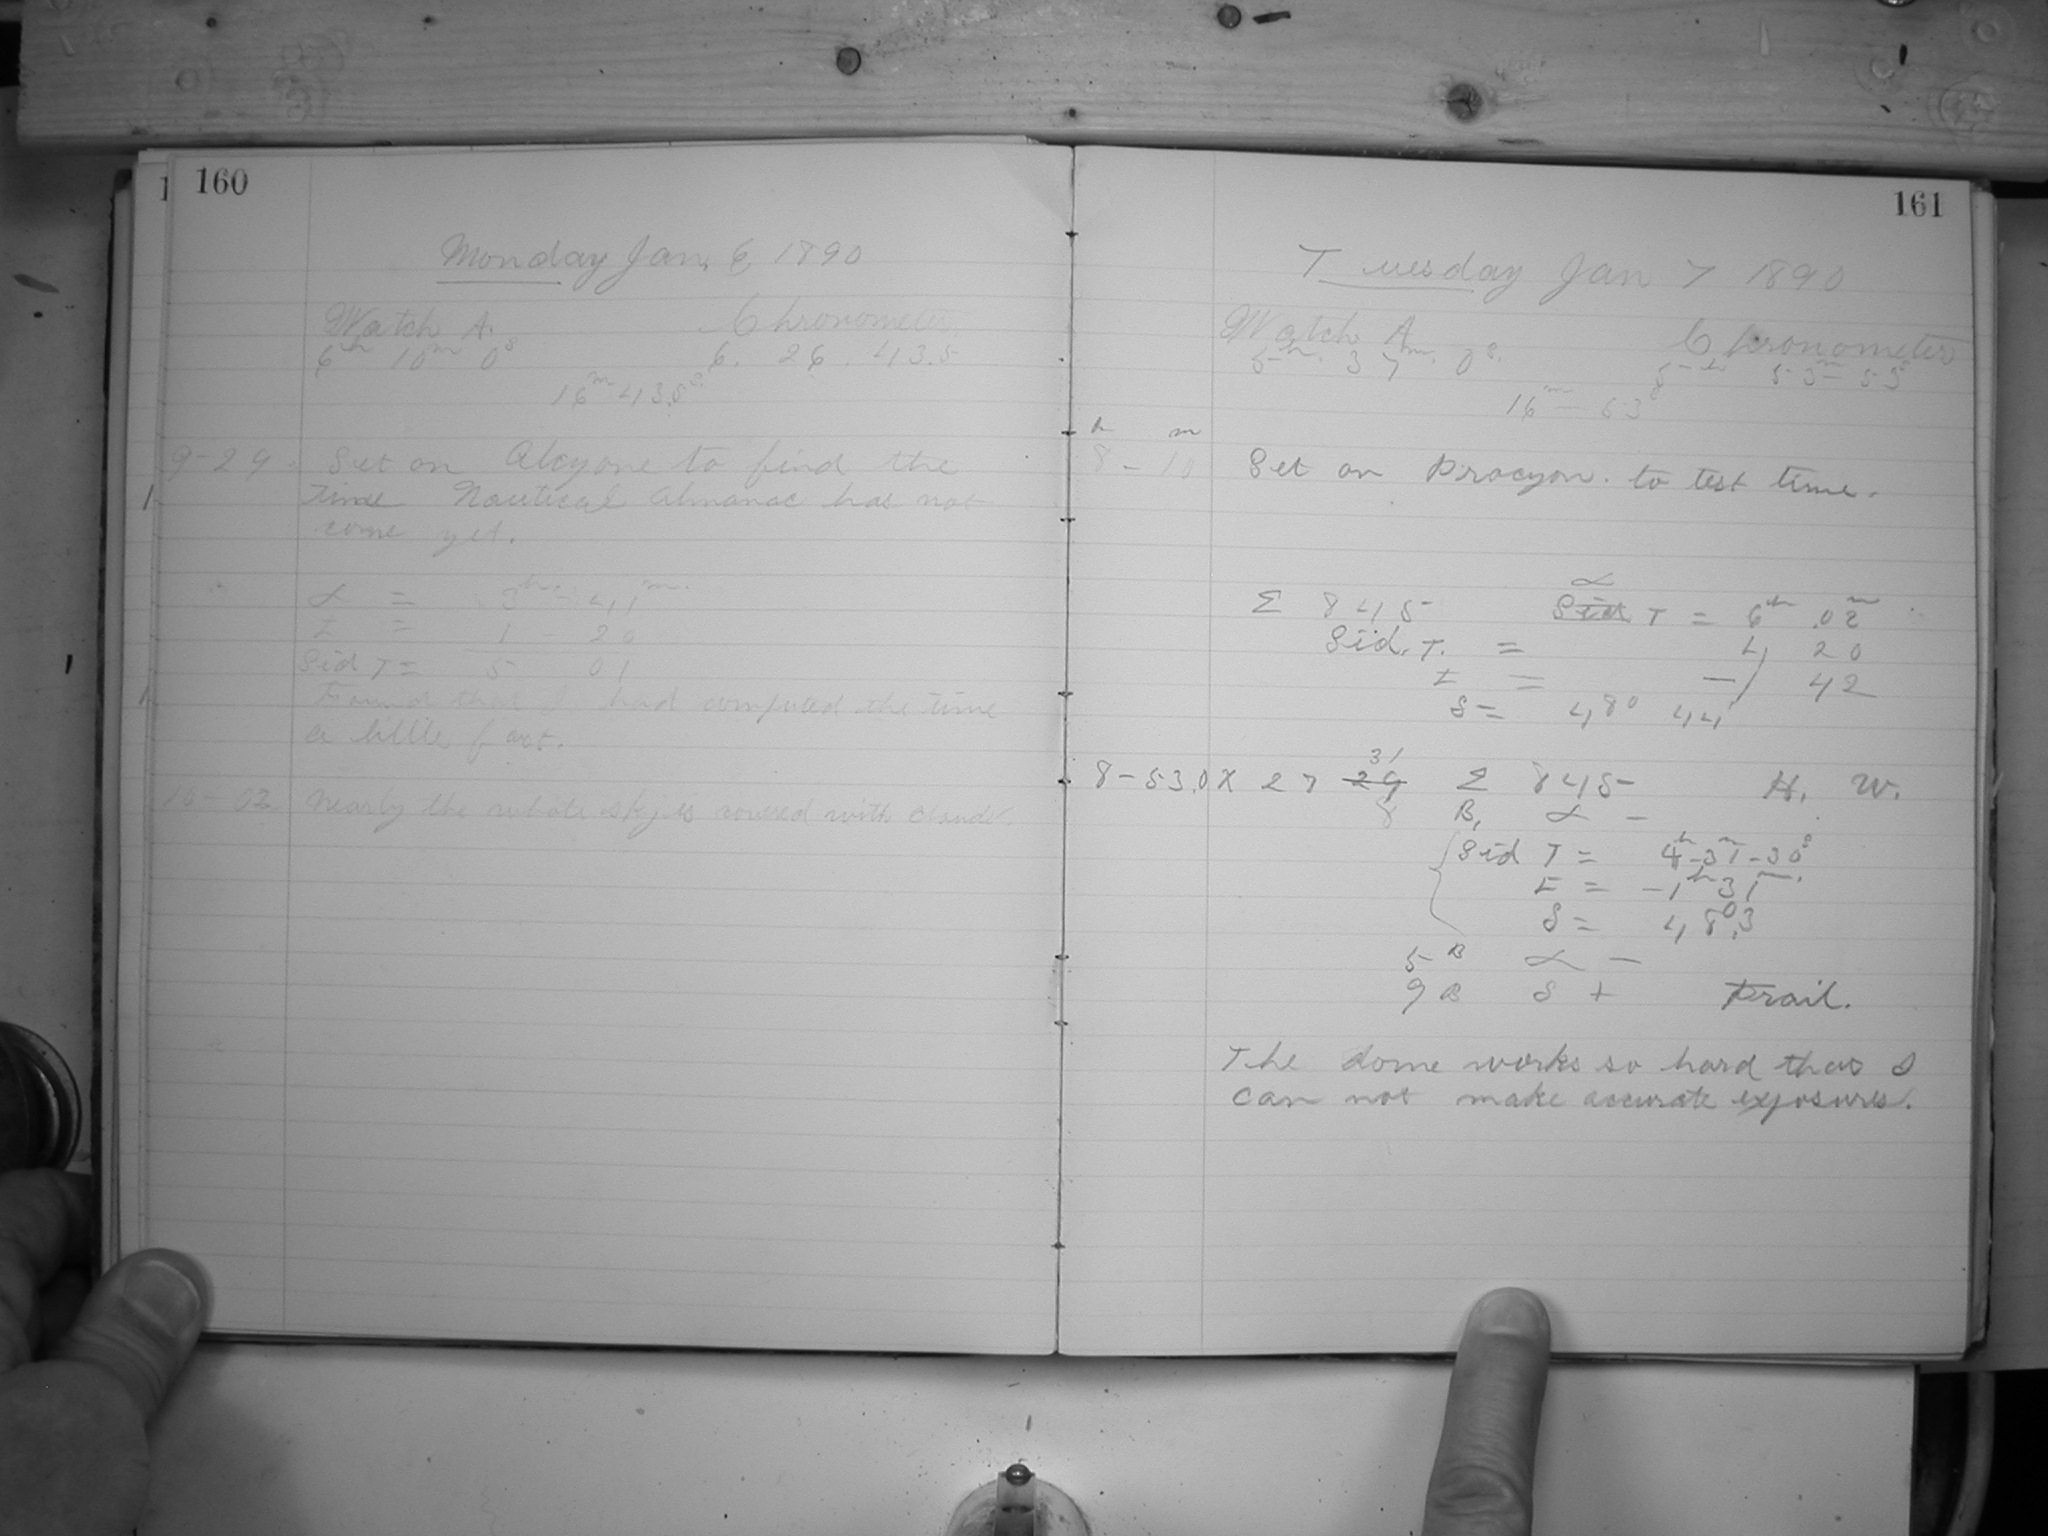 160
Monday Jan. 6 1890
Watch A. Chronometer.
6h 10m 0s 6. 26. 43.5
16m 43.5s
9-29 Set on Alcyone to find the
time Nautical Almanac has not
come yet.
α = 3h 41m
t = 1 - 20
Sid T = 5 01
Found that I had computed the time
a little fast.
10-02 Nearly the whole sky is covered with clouds.
161
Tuesday Jan 7 1890
Watch A Chronometer
5h. 37m. 0s. 5h 53m 53s
16m - 53s
h m
8-10 Set on Procyon. to test time.
α
Σ 845 Sid T = 6h 02m
Sid. T. = 4 20
t = -1 42
δ = 48° 44'
31
8-53.0 X 27 29 Σ 845 H. W.
8 B, α -
Sid T = 4h-31m-30s
t = -1h 31m.
δ = 48°.3
5 B α -
9 B δ + Trail.
The dome works so hard that I
can not make accurate exposures.